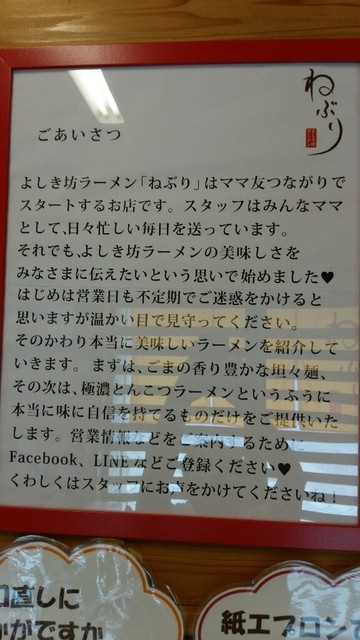 ねぶり
ごあいさつ
よしき坊ラーメン「ねぶり」はママ友つながりで
スタートするお店です。スタッフはみんなママ
として、日々忙しい毎日を送っています。
それでも、よしき坊ラーメンの美味しさを
みなさまに伝えたいという思いで始めました♥
はじめは営業日も不定期でご迷惑をかけると
思いますが温かい目で見守ってください。
そのかわり本当に美味しいラーメンを紹介して
いきます。まずは、ごまの香り豊かな坦々麺、
その次は、極濃とんこつラーメンというふうに
本当に味に自信を持てるものだけをご提供いた
します。営業情報などをご案内するために
Facebook、LINEなどご登録ください♥
くわしくはスタッフにお声をかけてくださいね！
口直しに
かがですか
紙エプロン